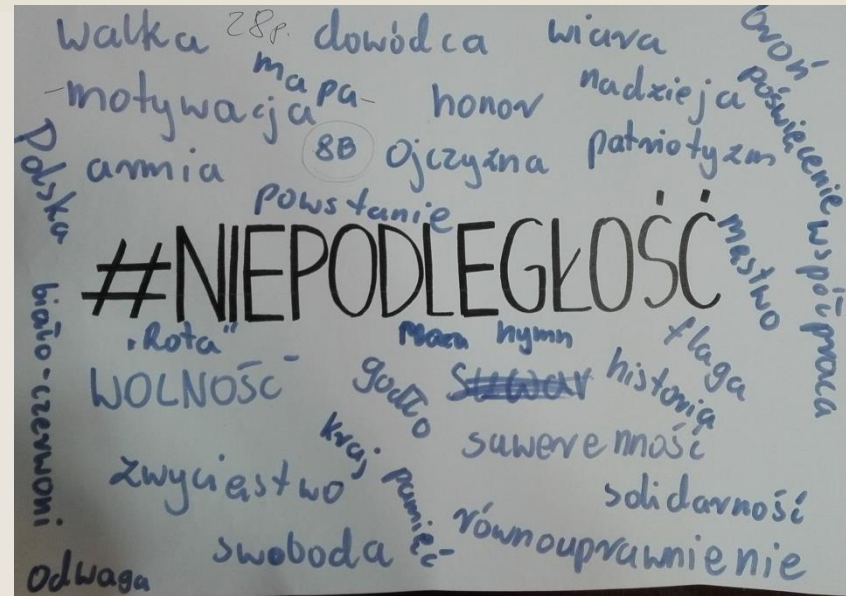 walka 28p. dowódca wiara broń
mapa
-motywacja- honor nadzieja poświęcenie
Polska armia 8B Ojczyzna patriotyzm
powstanie
męstwo współpraca
#NIEPODLEGŁOŚĆ
biało-czerwoni
"Rota" hymn flaga
WOLNOŚĆ godło historia
kraj suwerenność
zwycięstwo pamięć solidarność
swoboda równouprawnienie
odwaga